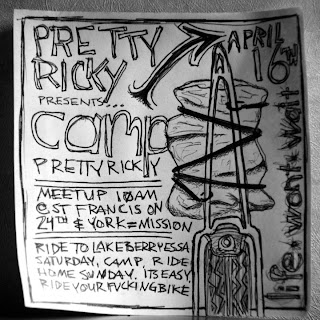 PRETTY
RICKY
APRIL
16TH
PRESENTS...
camp
PRETTY RICKY
MEETUP 10AM
@ST FRANCIS ON
24TH & YORK = MISSION
RIDE TO LAKE BERRYESSA
SATURDAY, CAMP, RIDE
HOME SUNDAY. ITS EASY
RIDE YOUR FUCKING BIKE
life • won't • wait